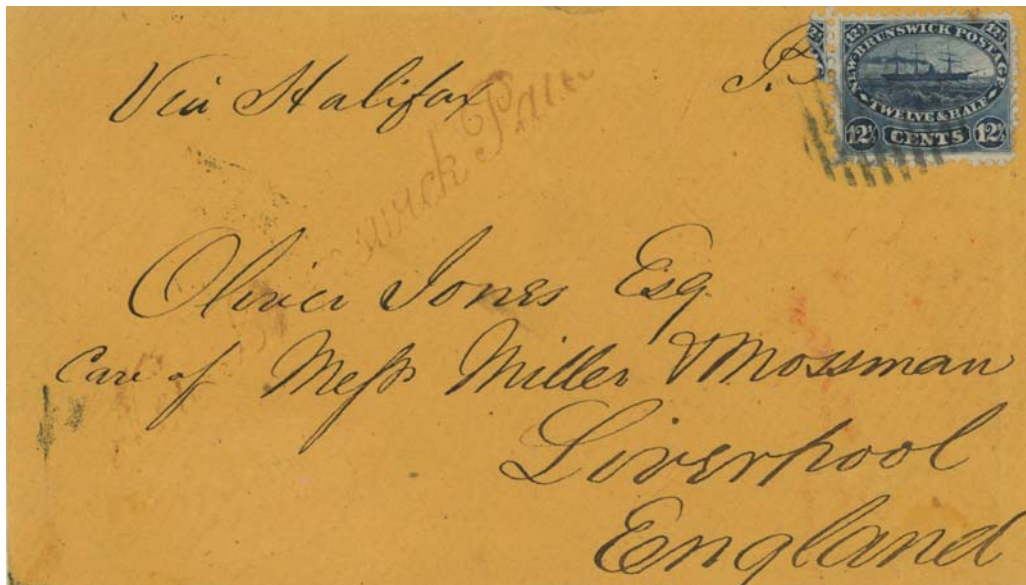 Via Halifax
NEW BRUNSWICK POSTAGE
TWELVE & HALF
12½ CENTS 12½
Oliver Jones Esq
Care of Messrs Miller & Mossman
Liverpool
England